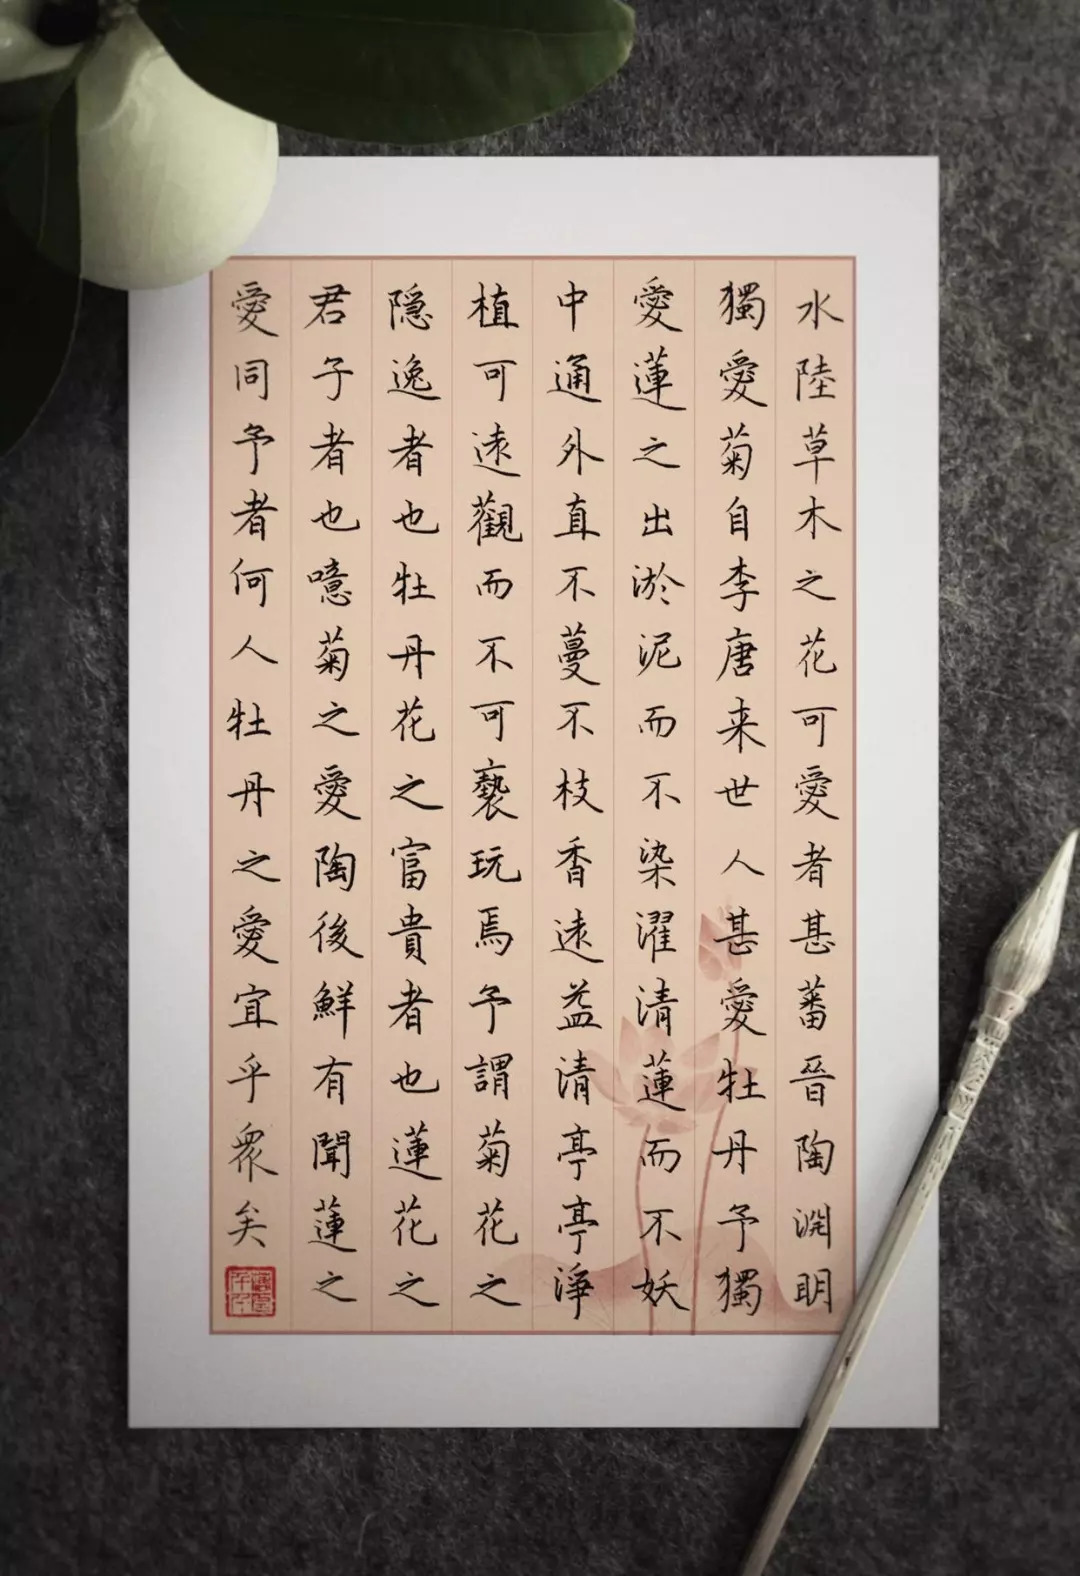 水陸草木之花可愛者甚蕃晉陶渊明
獨愛菊自李唐来世人甚愛牡丹予獨
愛蓮之出淤泥而不染濯清蓮而不妖
中通外直不蔓不枝香遠益清亭亭淨
植可遠觀而不可褻玩焉予謂菊花之
隱逸者也牡丹花之富貴者也蓮花之
君子者也噫菊之愛陶後鮮有聞蓮之
愛同予者何人牡丹之愛宜乎衆矣